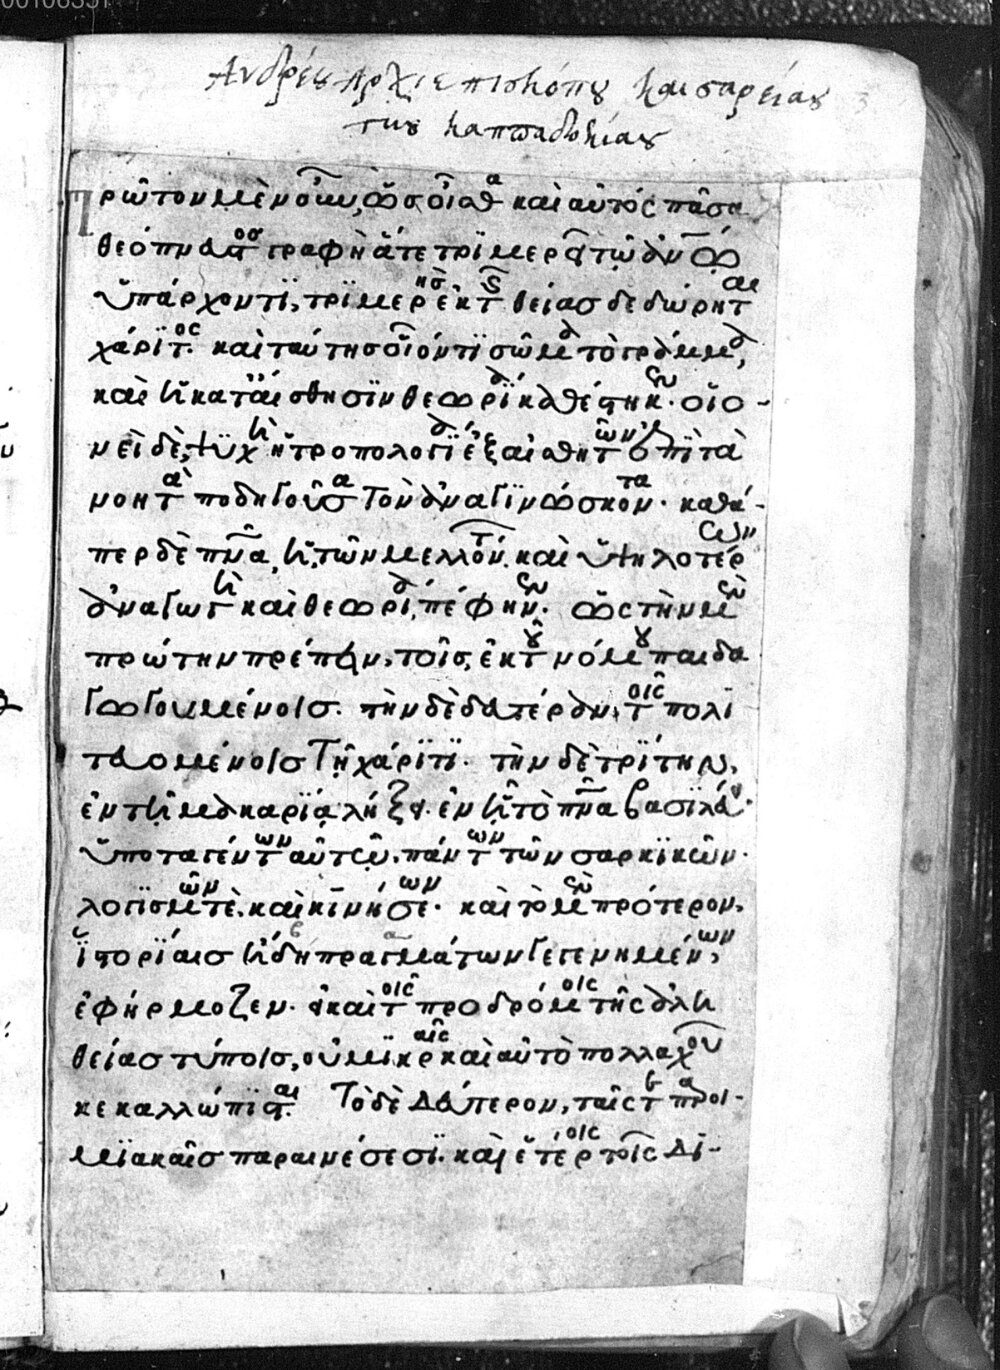 00106351
Ἀνδρέου Ἀρχιεπισκόπου Καισαρείας
της Καππαδοκίας
Πρῶτον μὲν οὖν, ὡς οἶσθα καὶ αὐτός πᾶσα
θεόπνευστος γραφὴ ἅτε τριμερεῖ τῷ ἀνῶ
ὑπάρχοντι, τριμερὴς ἐκ τῆς θείας δεδώρηται
χάριτος. καὶ ταύτης οἱονεὶ σῶμα τὸ γράμμα,
καὶ ἡ κατ' αἴσθησιν θεωρία καθέστηκεν. οἱο-
νεὶ δὲ ψυχὴ ἡ τροπολογία ἐξ αἰσθητῶν ἐπὶ τὰ
νοητὰ ποδηγοῦσα τὸν ἀναγινώσκοντα. καθά-
περ δὲ πνα, ἡ τῶν μελλόντων. καὶ ὑψηλοτέρων
ἀναγωγὴ καὶ θεωρία, πέφηνεν. ὡς τὴν μὲν
πρώτην πρέπειν, τοῖς, ἐκ τοῦ νόμου παιδα
γωγουμένοις. τὴν δὲ δευτέραν, τοῖς πολι
τευομένοις τῇ χάριτι. τὴν δὲ τρίτην,
ἐν τῇ μακαρίᾳ λήξει. ἐν ᾗ τὸ πνα βασιλεύει.
ὑποταγέντων αὐτῷ, πάντων τῶν σαρκικῶν.
λογισμῶν τὲ. καὶ κινήσεων. καὶ τὸ μὲν πρότερον,
ἱστορίαις ἤδη πραγμάτων γεγενημένων,
ἐφήρμοζεν. εἰ καὶ τοῖς προδρόμοις τῆς ἀλη
θείας τύποις, οὐ μικραῖς καὶ αὐτὸ πολλαχοῦ
κεκαλλώπισται. Τὸ δὲ δεύτερον, ταῖς τε παροι-
μιακαῖς παραινέσεσι. καὶ ἑτέροις τοῖς δι-